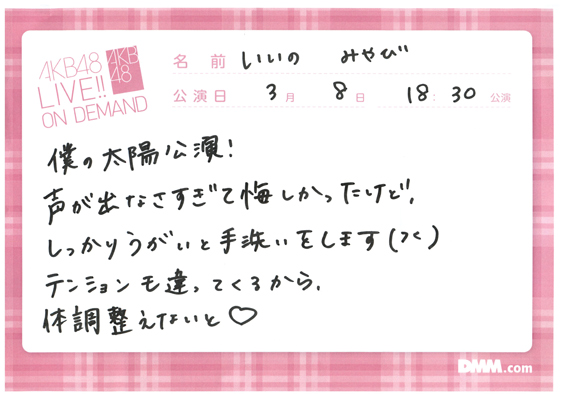 AKB48
LIVE!!
ON DEMAND
AKB
48
名前 いいの みやび
公演日 3月 8日 18:30 公演
僕の太陽公演!
声が出なさすぎて悔しかったけど、
しっかりうがいと手洗いをします(つく)
テンションも違ってくるから、
体調整えないと♡
DMM.com